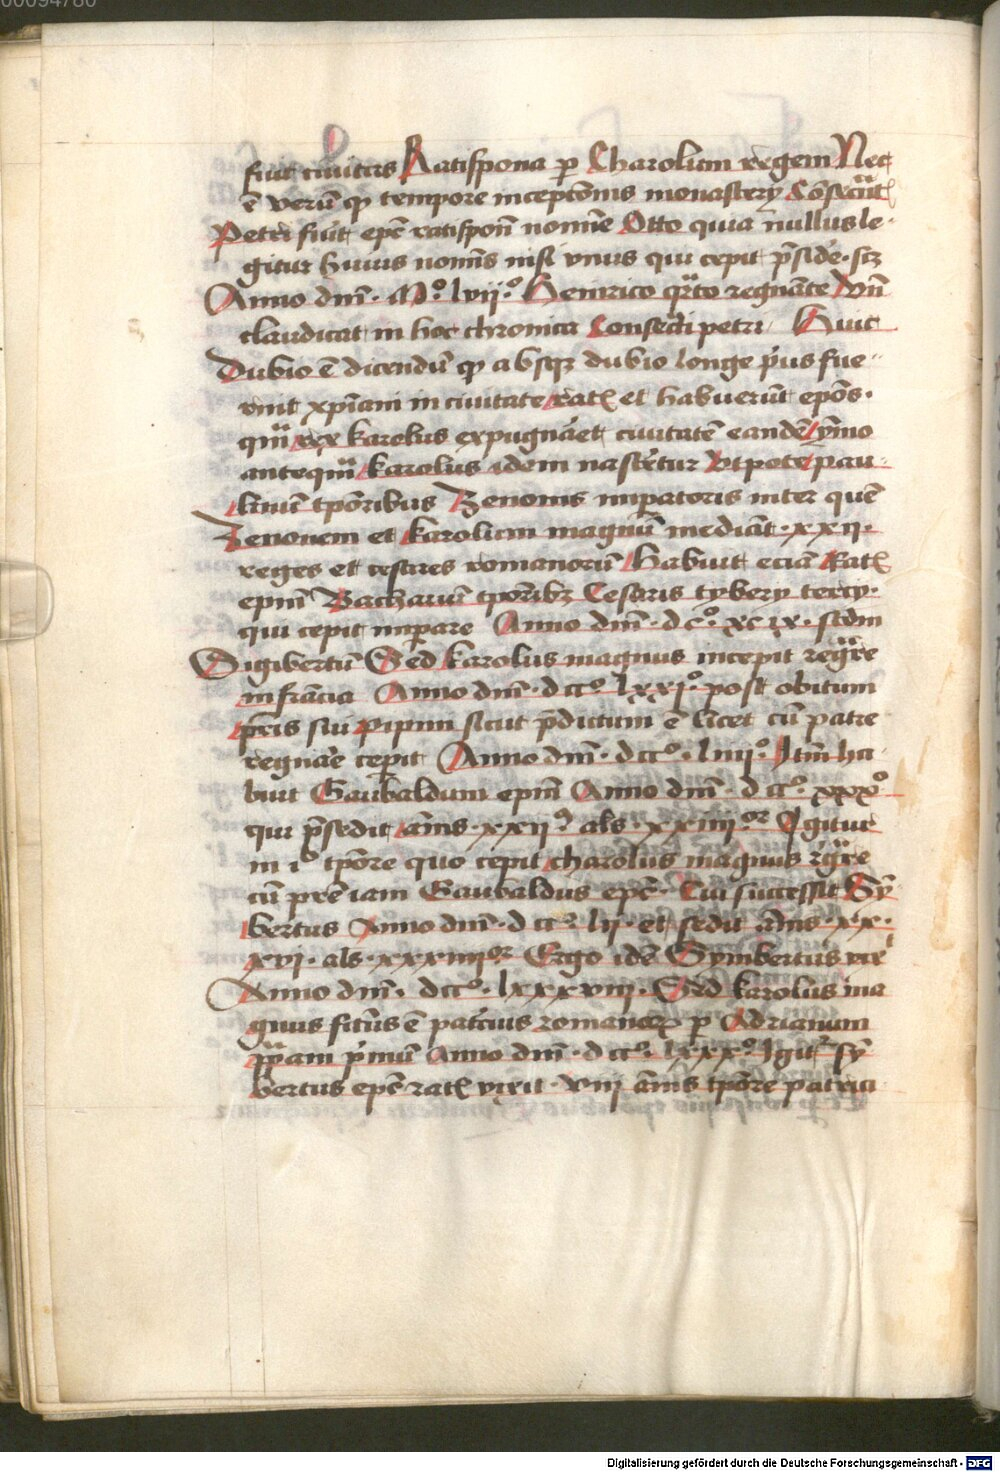 00094780
fuit ciuitas Ratispona ꝑ Charolum regem Nec
ē verū ꝙ tempore inceptōnis monastery Cōsecͣti
Petri fuit epc̄ ratispon̄ nomīe Otto quia nullus le
gitur huius nomīs nisi vnus qui cepit p̄side scꝫ
Anno dnī · Mͦ · lviiͦ · Heinrico qͣrto regnāte Vn̄
claudicat in hoc chronica Consecͣti petri Huic
Dubio ē dicendū ꝙ absqꝫ dubio longe pͥus fue
runt xp̄iani in ciuitate rat et habuerūt epōs ·
qm̄ rex karolus expugnāet ciuitatē eandē ymo
anteqm̄ karolus idem nascͤetur Vtpote pau
linū tpōribus Zenonis imꝑatoris inter quē
Zenonem et karolum magnū mediāt · xxij ·
reges et cesares romanorū Habuit eciā Rat
epm̄ Bachariū tpōribꝫ Cesaris tybery tercy ·
qui cepit imꝑare Anno dnī · dcͦ · xcix · scdm
Sigibertū Sed karolus magnus incepit regͣre
in frācia Anno dnī · dccͦ lxxjͦ · post obitum
pr̄is sui Pipini sicut p̄dictum ē licet cū patre
regnāe cepit Anno dnī · dccͦ · liiijͦ · Itm̄ ha
buit Gaubaldum epm̄ Anno dnī · dccͦ · xxxͦ
qui p̄sedit ānis · xxij als · xxiiijor Igitur
in iͦ tpōre quo cepit charolus magnus rgͣre
cū pr̄e iam Gaubaldus epc̄ · Cui successit Sy
bertus Anno dnī · dccͦ · lij · et sedit ānis · xx ·
xvi · als · xxxiiijor Ergo idē Symbertus vix͛
Anno dnī · dccͦ · lxxxviij · Sed karolus ma
gnus fītus ē patͥcius romanoꝝ ꝑ Adrianum
ppam pͥmū Anno dnī · dccͦ · lxxxͦ · Igitᷣ sy
bertus epc̄ rat vixit · viij ānis tpōre patrici
Digitalisierung gefördert durch die Deutsche Forschungsgemeinschaft · DFG